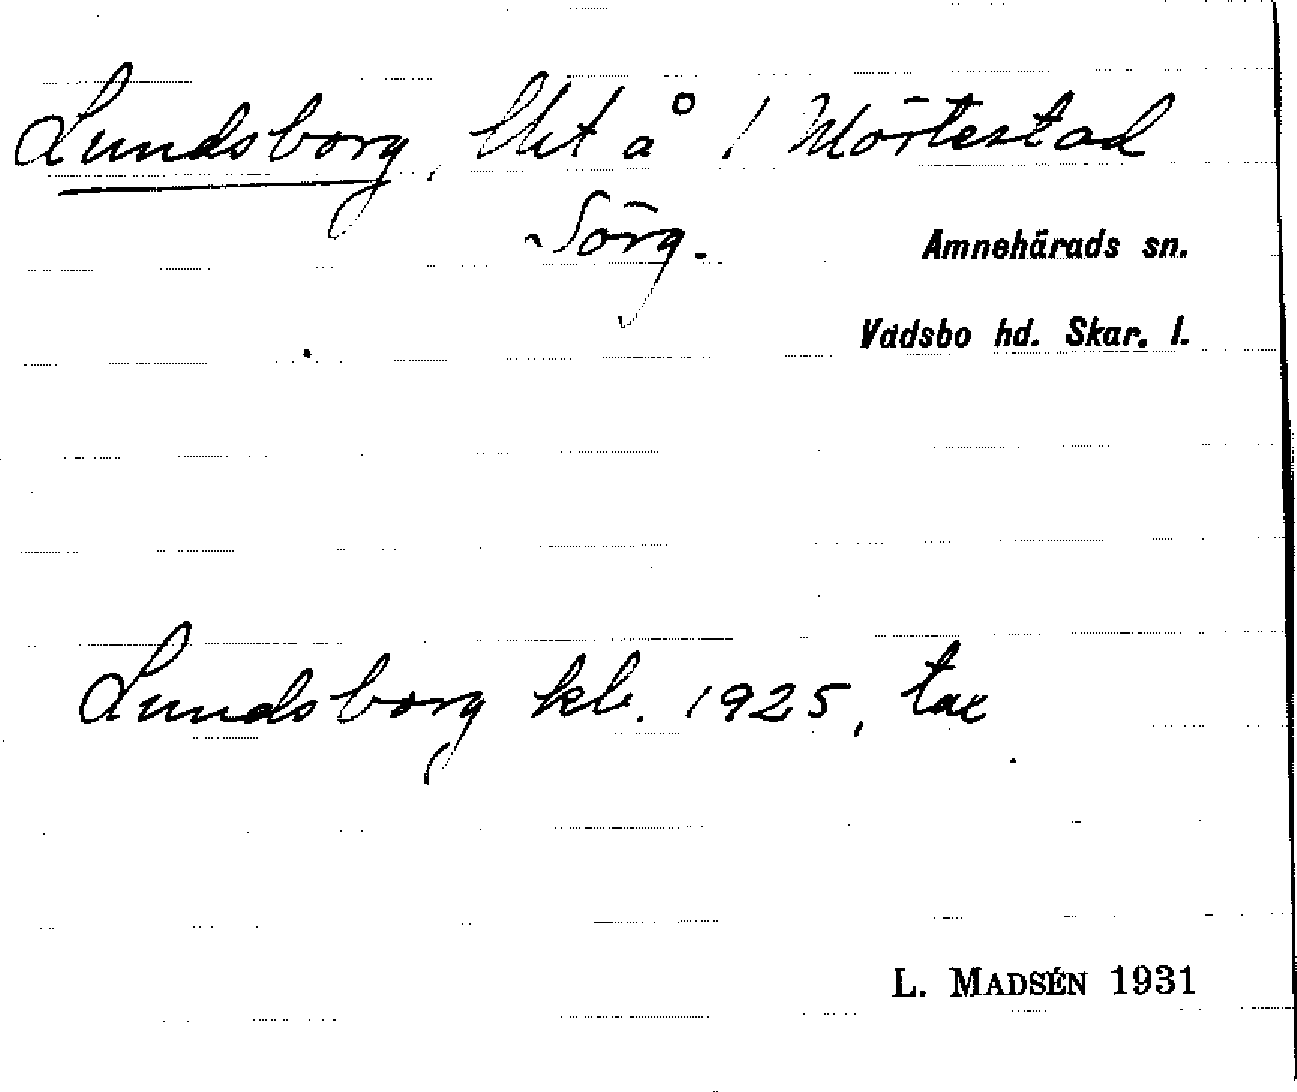 Lundsborg, lht å 1 Mörtestad
Sörg.
Amnehärads sn.
Vadsbo hd. Skar. l.
Lundsborg klb. 1925, tax
L. MADSÉN 1931